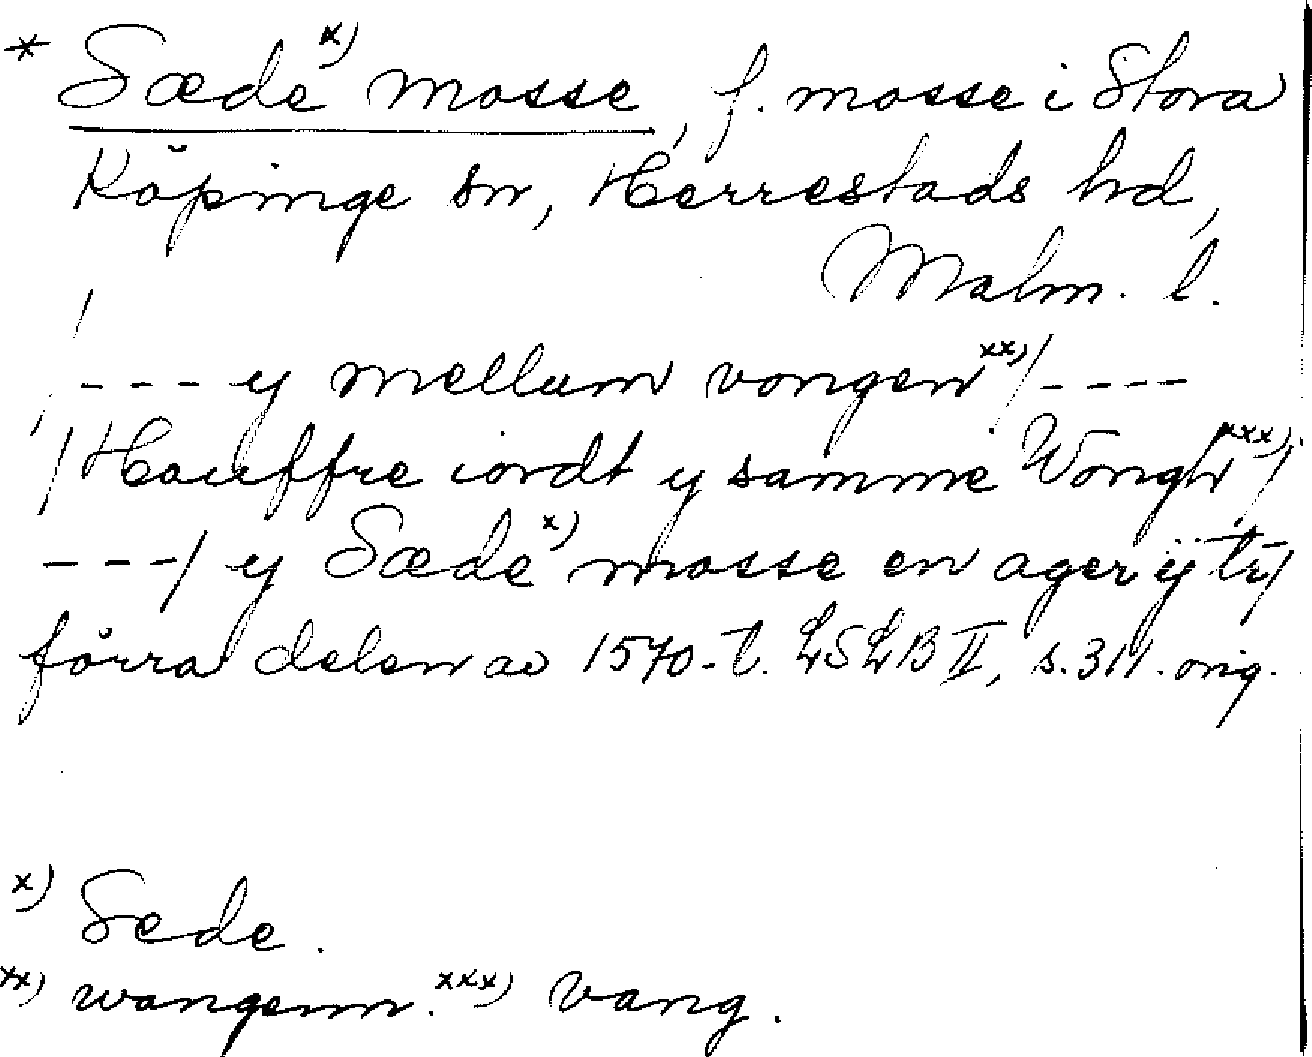 * Sæde x) mosse, f. mosse i Stora
Köpinge sn, Herrestads hd,
Malm. l.
/
/ - - - y mellum vongen xx) / - - - -
/ Hauffre iordt y samme Wongh xxx) /
- - - / y Sæde x) mosse en ager ÿ try
förra delen av 1570-t. LSLB II, s. 311. orig.
x) Sede.
xx) wangenn. xxx) vang.